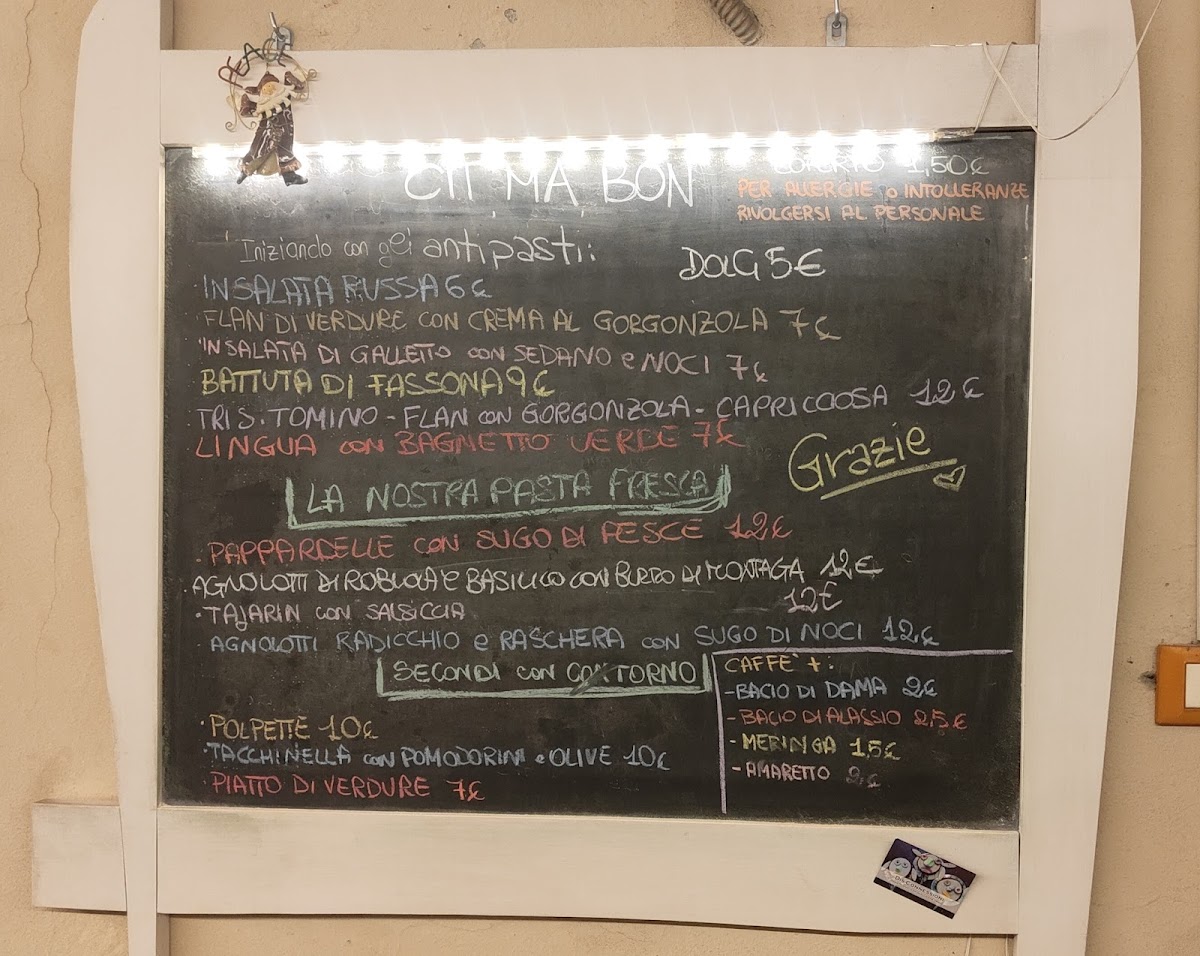 PEACE
CIT MA BON
COPERTO 1,50€
PER ALLERGIE o INTOLLERANZE
RIVOLGERSI AL PERSONALE
Iniziando con gli antipasti:
DOLCI 5€
INSALATA RUSSA 6€
FLAN DI VERDURE CON CREMA AL GORGONZOLA 7€
INSALATA DI GALLETTO con SEDANO e NOCI 7€
BATTUTA DI FASSONA 9€
TRIS. TOMINO - FLAN con GORGONZOLA - CAPRICCIOSA 12€
LINGUA con BAGNETTO VERDE 7€
Grazie
LA NOSTRA PASTA FRESCA
PAPPARDELLE con SUGO DI PESCE 12€
AGNOLOTTI DI ROBIOLA e BASILICO con BURRO DI MONTAGA 12€
TAJARIN con SALSICCIA 12€
AGNOLOTTI RADICCHIO e RASCHERA con SUGO DI NOCI 12€
SECONDI con CONTORNO
POLPETTE 10€
TACCHINELLA con POMODORINI e OLIVE 10€
PIATTO DI VERDURE 7€
CAFFE' +:
- BACIO DI DAMA 2€
- BACIO DI ALASSIO 2,5€
- MERINGA 1,5€
- AMARETTO 2€